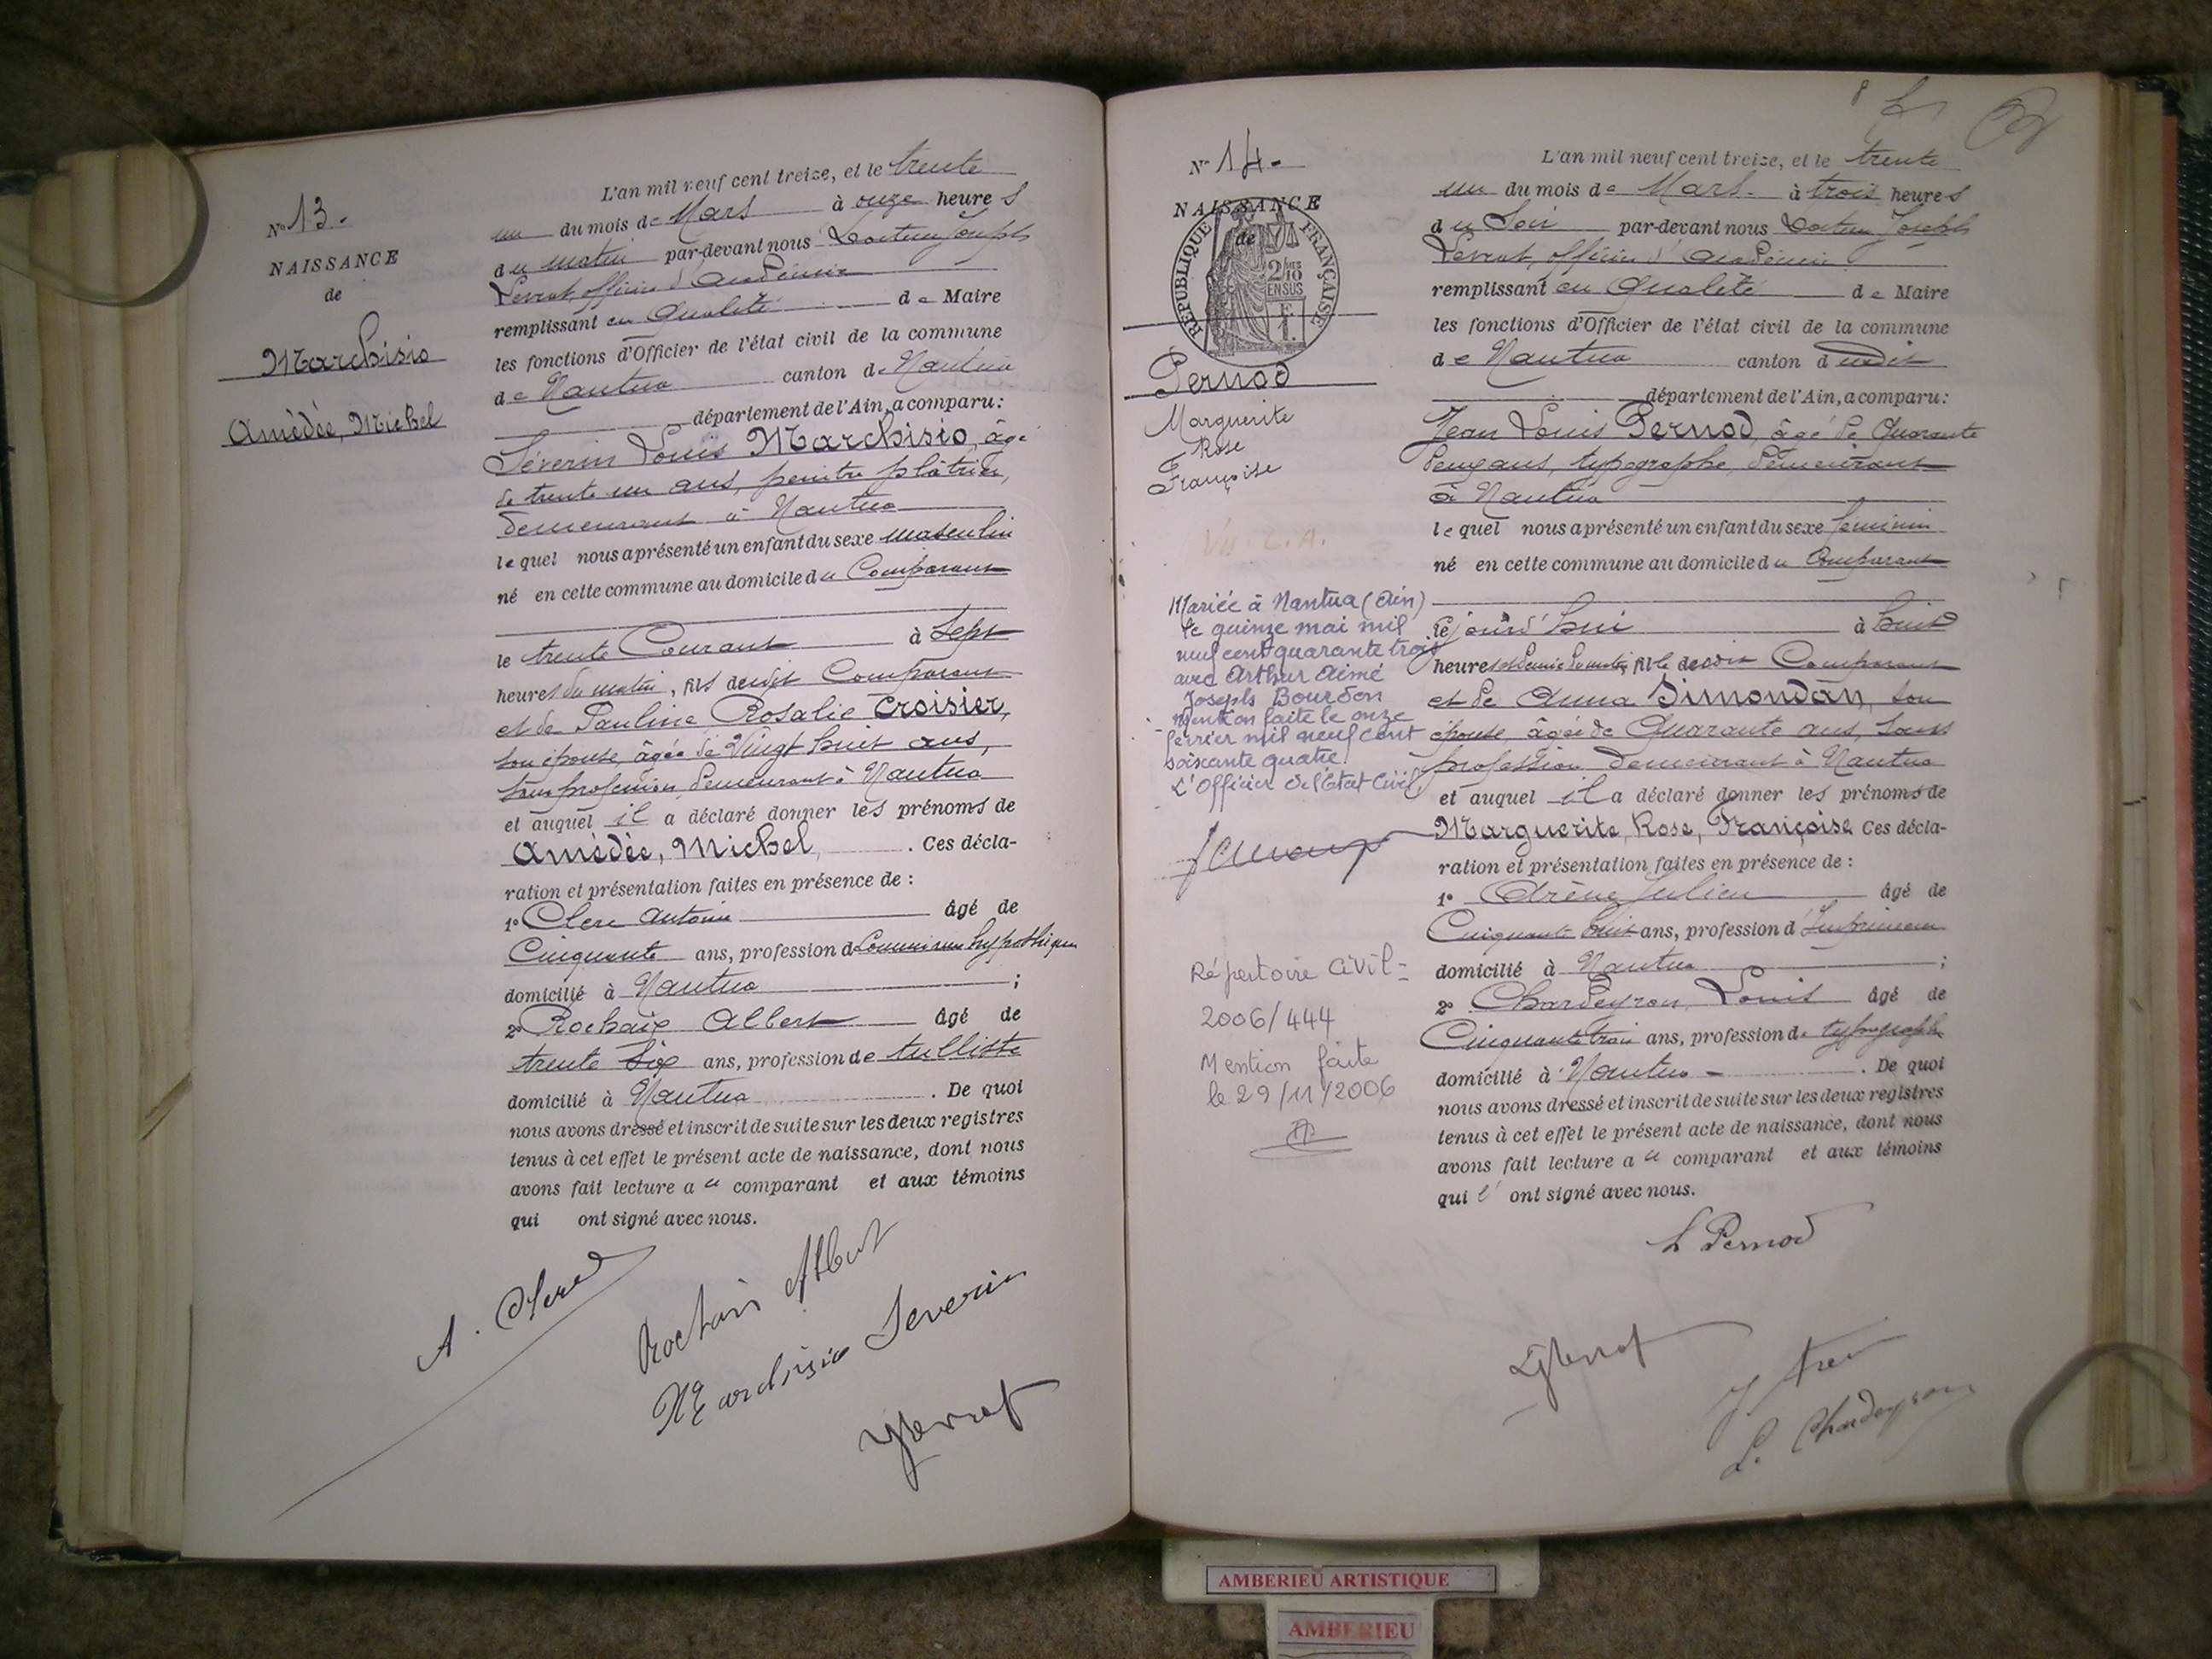 N° 13.
NAISSANCE
de
Marchisio
Amédée, Michel
L'an mil neuf cent treize, et le trente
un du mois de Mars à onze heures
du matin par-devant nous Docteur Joseph
Levrat, officier d'Académie
remplissant en qualité de Maire
les fonctions d'Officier de l'état civil de la commune
de Nantua canton de Nantua
département de l'Ain, a comparu:
Séverin Louis Marchisio, âgé
de trente un ans, peintre plâtrier,
demeurant à Nantua
lequel nous a présenté un enfant du sexe masculin
né en cette commune au domicile du Comparant
le trente Courant à Sept
heures du matin, fils dudit Comparant
et de Pauline Rosalie Croisier,
son épouse, âgée de Vingt huit ans,
sans profession, demeurant à Nantua
et auquel il a déclaré donner les prénoms de
Amédée, Michel. Ces décla-
ration et présentation faites en présence de :
1° Clerc Antoine âgé de
Cinquante ans, profession d
domicilié à Nantua ;
2° Rochaix Albert âgé de
trente Six ans, profession de tulliste
domicilié à Nantua. De quoi
nous avons dressé et inscrit de suite sur les deux registres
tenus à cet effet le présent acte de naissance, dont nous
avons fait lecture au comparant et aux témoins
qui ont signé avec nous.
A. Clerc
Rochaix Albert
Marchisio Severin
JLevrat
8
N° 14.
NAISSANCE
de
RÉPUBLIQUE FRANÇAISE
2/10
EN SUS
Pernod
Marguerite
Rose
Françoise
Mariée à Nantua (Ain)
le quinze mai mil
neuf cent quarante trois
avec Arthur Aimé
Joseph Bourdon
mention faite le onze
février mil neuf cent
soixante quatre
L'Officier de l'Etat Civil,
Répertoire Civil =
2006/444
Mention faite
le 29/11/2006
L'an mil neuf cent treize, et le trente
un du mois de Mars à trois heures
du Soir par-devant nous Docteur Joseph
Levrat, officier d'Académie
remplissant en Qualité de Maire
les fonctions d'Officier de l'état civil de la commune
de Nantua canton dudit
département de l'Ain, a comparu:
Jean Louis Pernod, âgé de Quarante
deux ans, typographe, demeurant
à Nantua
lequel nous a présenté un enfant du sexe féminin
né en cette commune au domicile du Comparant
cejourd'hui à huit
heures et demie du matin, fille dudit Comparant
et de Anna Simondan, son
épouse, âgée de Quarante ans, sans
profession demeurant à Nantua
et auquel il a déclaré donner les prénoms de
Marguerite, Rose, Françoise Ces décla-
ration et présentation faites en présence de :
1° Arène Julien âgé de
Cinquante huit ans, profession d'Imprimeur
domicilié à Nantua ;
2° Chardeyron Louis âgé de
Cinquante trois ans, profession de typographe
domicilié à Nantua. De quoi
nous avons dressé et inscrit de suite sur les deux registres
tenus à cet effet le présent acte de naissance, dont nous
avons fait lecture au comparant et aux témoins
qui l'ont signé avec nous.
L Pernod
JLevrat
L. Chardeyron
AMBERIEU ARTISTIQUE
AMBERIEU